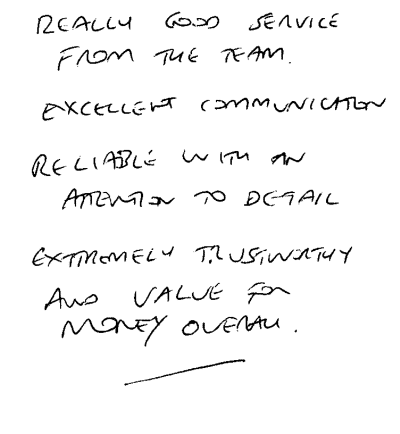 REALLY GOOD SERVICE
FROM THE TEAM.
EXCELLENT COMMUNICATION
RELIABLE WITH AN
ATTENTION TO DETAIL
EXTREMELY TRUSTWORTHY
AND VALUE FOR
MONEY OVERALL.